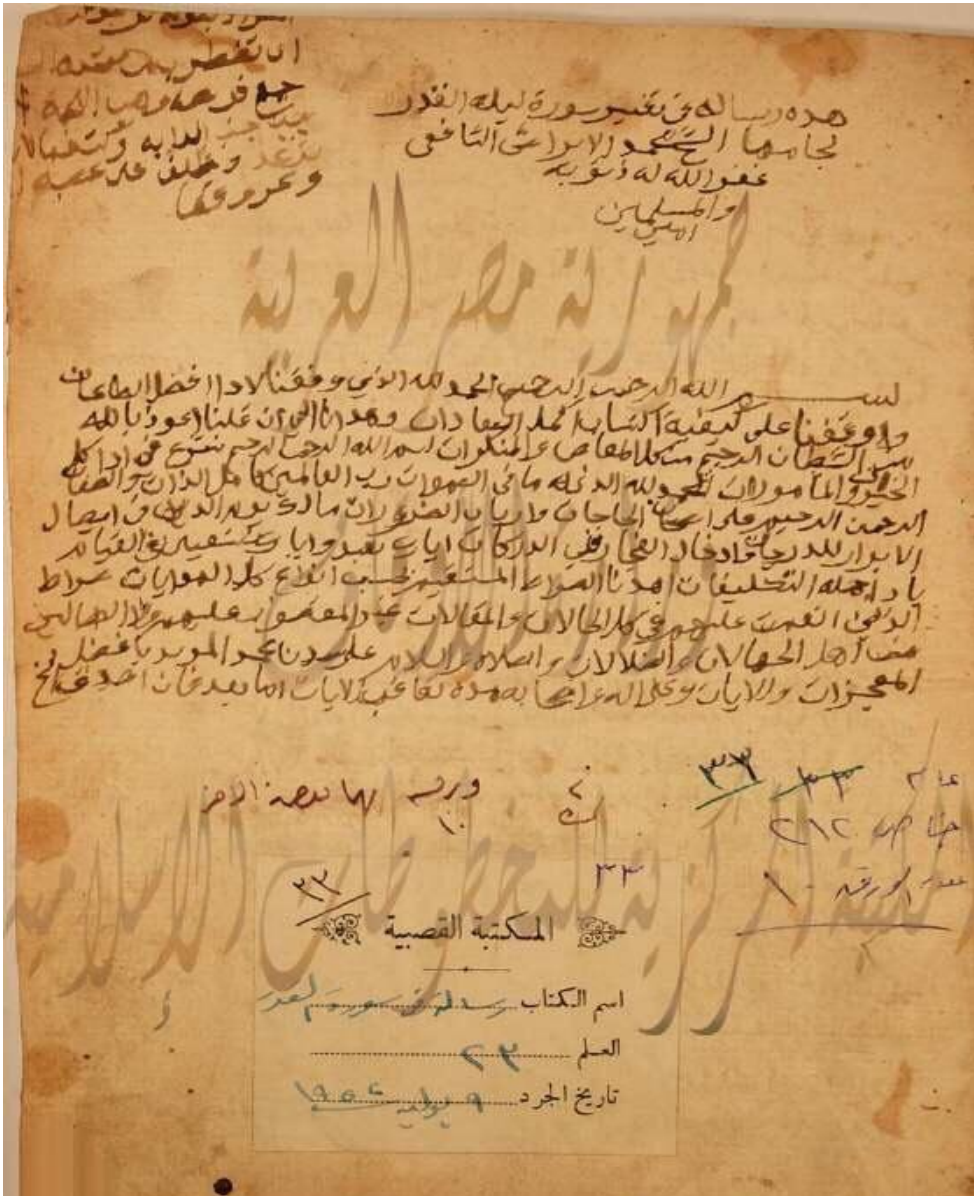 هذه رسالة في تفسير سورة ليلة القدر
لجامعها الشيخ محمد الابراشي الشافعي
غفر الله له ذنوبه
والمسلمين
امين
وعرروقها
جمهورية مصر العربية
بسم الله الرحمن الرحيم الحمد لله الذي وفقنا لادا افضل الطاعات
واوقفنا على كيفية اكتساب اكمل السعادات وهدانا الى ان قلنا اعوذ بالله
من الشيطان الرجيم من كل المعاصي والمنكرات بسم الله الرحمن الرحيم نشرع في ادا كل
الخير والمأمورات الحمد لله الذي له ما في السموات رب العالمين كامل الذات والصفات
الرحمن الرحيم على اصحاب الحاجات وارباب الضرورات مالك يوم الدين في ايصال
الابرار للدرجات وادخال الفجار في الدركات اياك نعبد واياك نستعين في القيام
بأدا جملة التكليفات اهدنا الصراط المستقيم بحسب انواع كل الهدايات صراط
الذين انعمت عليهم في كل الحالات والمقالات غير المغضوب عليهم ولا الضالين
من اهل الجهالات والضلالات والصلاة والسلام على سيدنا محمد المؤيد بافضل
المعجزات والايات وعلى اله واصحابه مدة تعاقب الايات اما بعد فان
وزارة الأوقاف
عام ٣٣ ٣٦
خاص ٢١٢
عدد اورقه ١٠
١٠
المكتبة المركزية للمخطوطات الاسلامية
٣٣
٣٣
المكتبة القصبية
اسم الكتاب رسالة في سورة القدر
العلم ٢٣
تاريخ الجرد ٩ يوليه ١٩٥٤